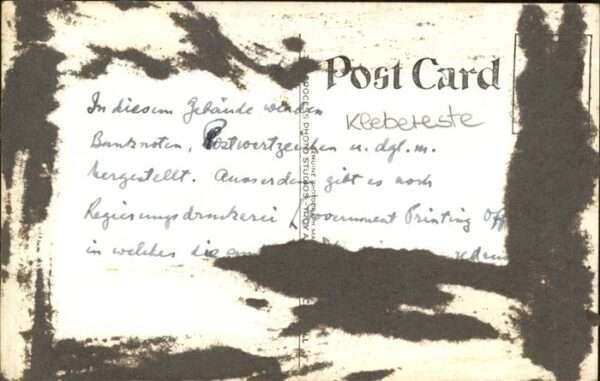 Post Card
Klebereste
In diesem Gebäude werden
Banknoten, Postwertzeichen u. dgl. m.
hergestellt. Ausserdem gibt es noch
Regierungsdruckerei (Government Printing Off
in welches die